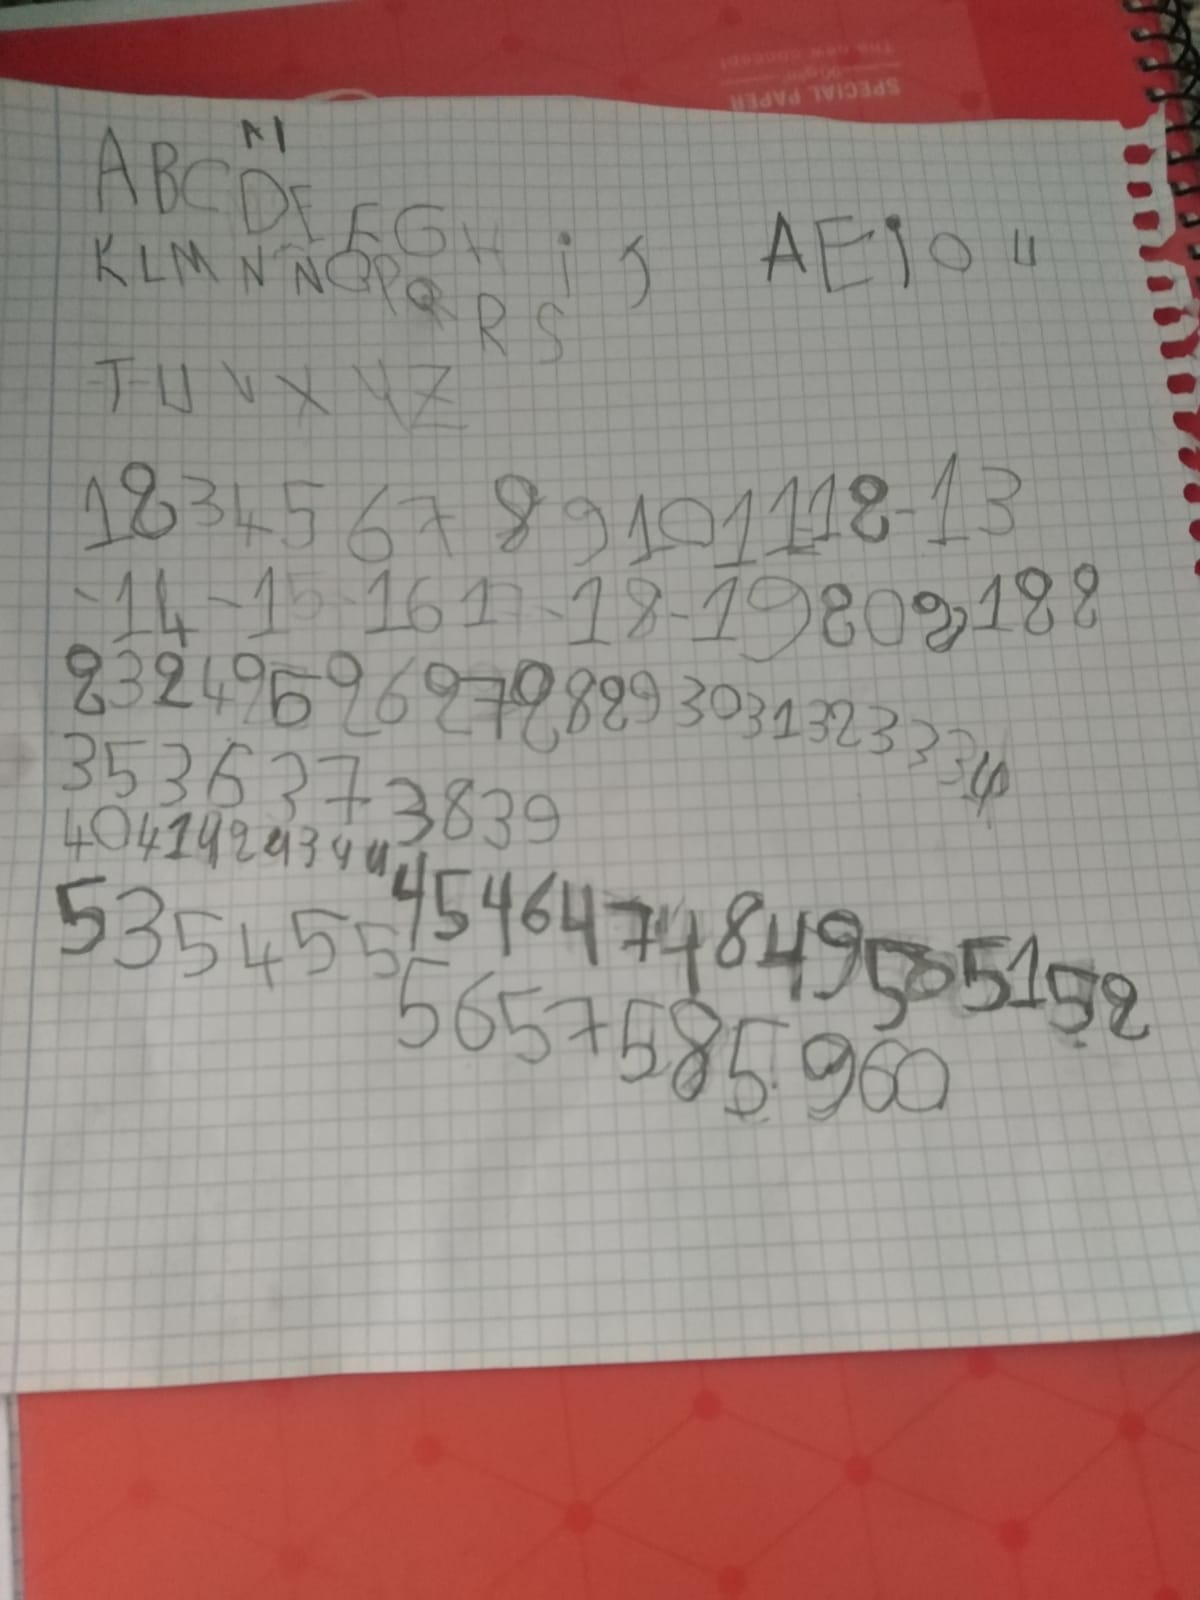 The new concept
SPECIAL PAPER
N
A B C D E F G H i J
K L M N Ñ O P Q R S
A E i O U
T U V X Y Z
1 2 3 4 5 6 7 8 9 10 11 12-13
-14-15-16 17-18-19 20 21 22
23 24 25 26 27 28 29 30 31 32 33 34
35 36 37 38 39
40 41 42 43 44 45 46 47 48 49 50 51 52
53 54 55 56 57 58 59 60